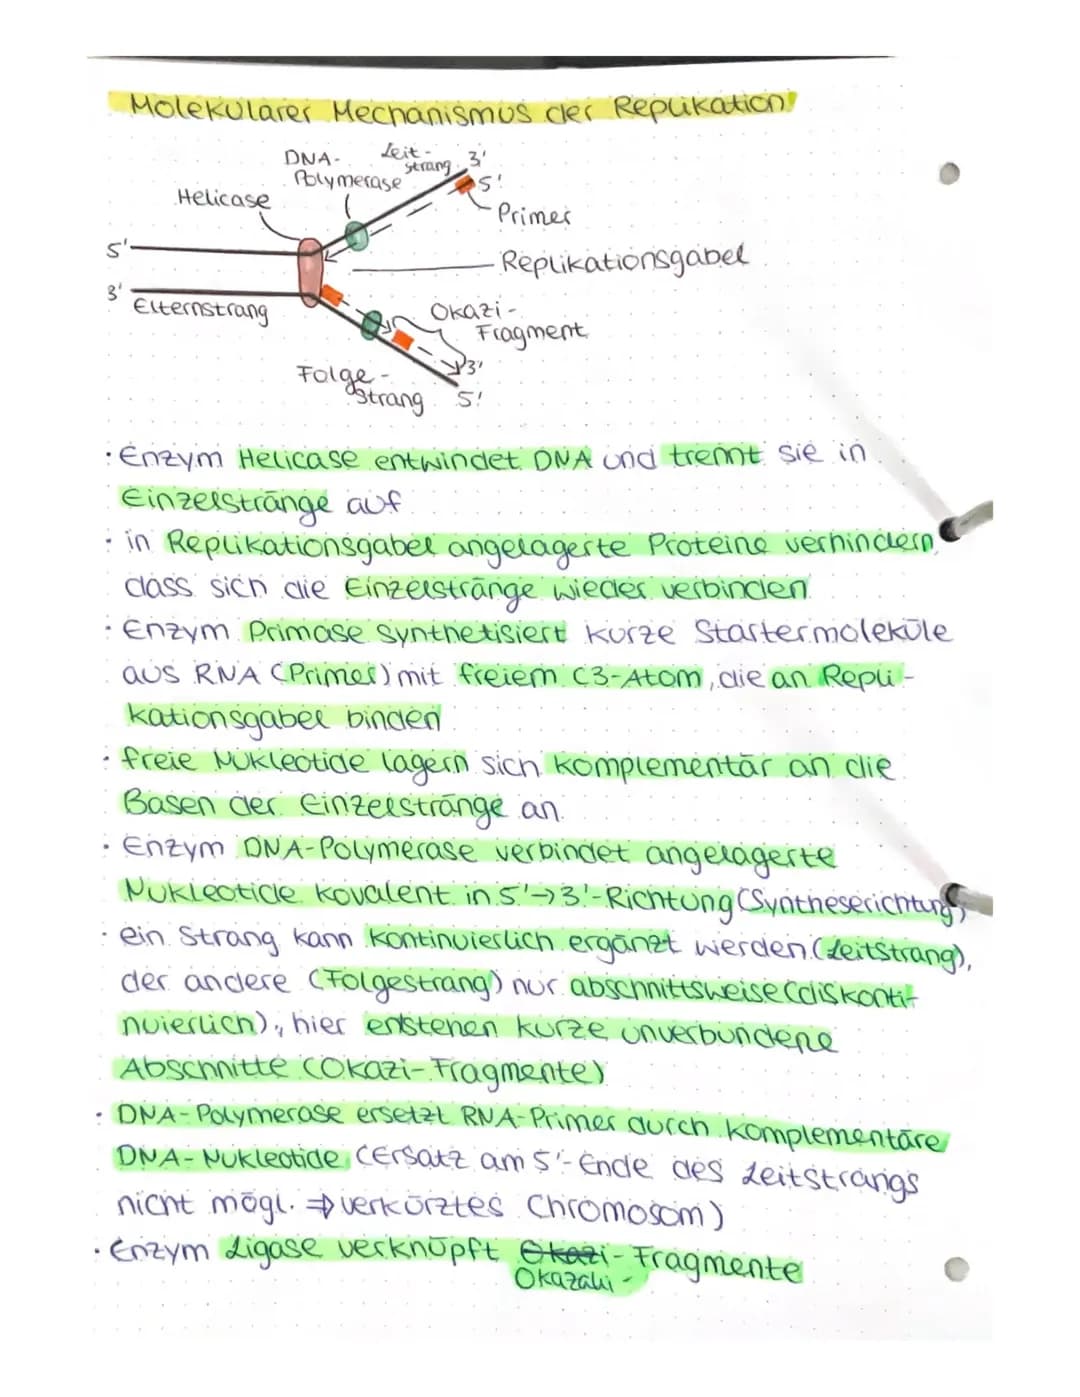 Molekularer Mechanismus der Replikation!
DNA-
Polymerase
Leit-
strang
3'
5'
Helicase
Primer
5'
Replikationsgabel
3'
Elternstrang
Okazi-
Fragment
Folge-
strang
3'
5'
· Enzym Helicase entwindet DNA und trennt sie in
Einzelstränge auf
· in Replikationsgabel angelagerte Proteine verhindern,
dass sich die Einzelstränge wieder verbinden
· Enzym Primase synthetisiert kurze Startermoleküle
aus RNA (Primer) mit freiem C3-Atom, die an Repli-
kationsgabel binden
· freie Nukleotide lagern sich komplementär an die
Basen der Einzelstränge an
· Enzym DNA-Polymerase verbindet angelagerte
Nukleotide kovalent in 5'→3'-Richtung (Syntheserichtung)
· ein Strang kann kontinuierlich ergänzt werden (Leitstrang),
der andere (Folgestrang) nur abschnittsweise (diskonti-
nuierlich), hier enstehen kurze unverbundene
Abschnitte (Okazi-Fragmente)
· DNA-Polymerase ersetzt RNA-Primer durch komplementäre
DNA-Nukleotide (Ersatz am 5'-Ende des Leitstrangs
nicht mögl. ⇒ verkürztes Chromosom)
· Enzym Ligase verknüpft Okazi-Fragmente
Okazaki-